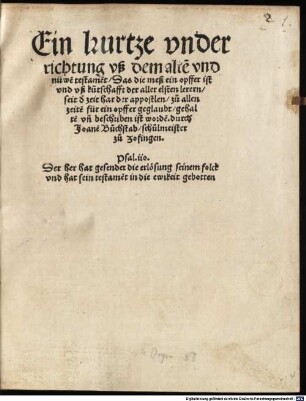 2 1.
Ein kurtze vnder
richtung vß dem altē vnd
nüwē testamēt/ Das die meß ein opffer ist
vnd vß kūtschafft der aller elsten lerern/
seit d zeit har der appostlen/ zů allen
zeitē für ein opffer geglaubt/ gehal
tē vñ beschriben ist wordē. durch
Joanē Bůchstab/ schůlmeister
zů Zofingen.
Psal.iio.
Der her hat gesendet die erlösung seinem folck
vnd hat sein testamēt in die ewikeit gebotten